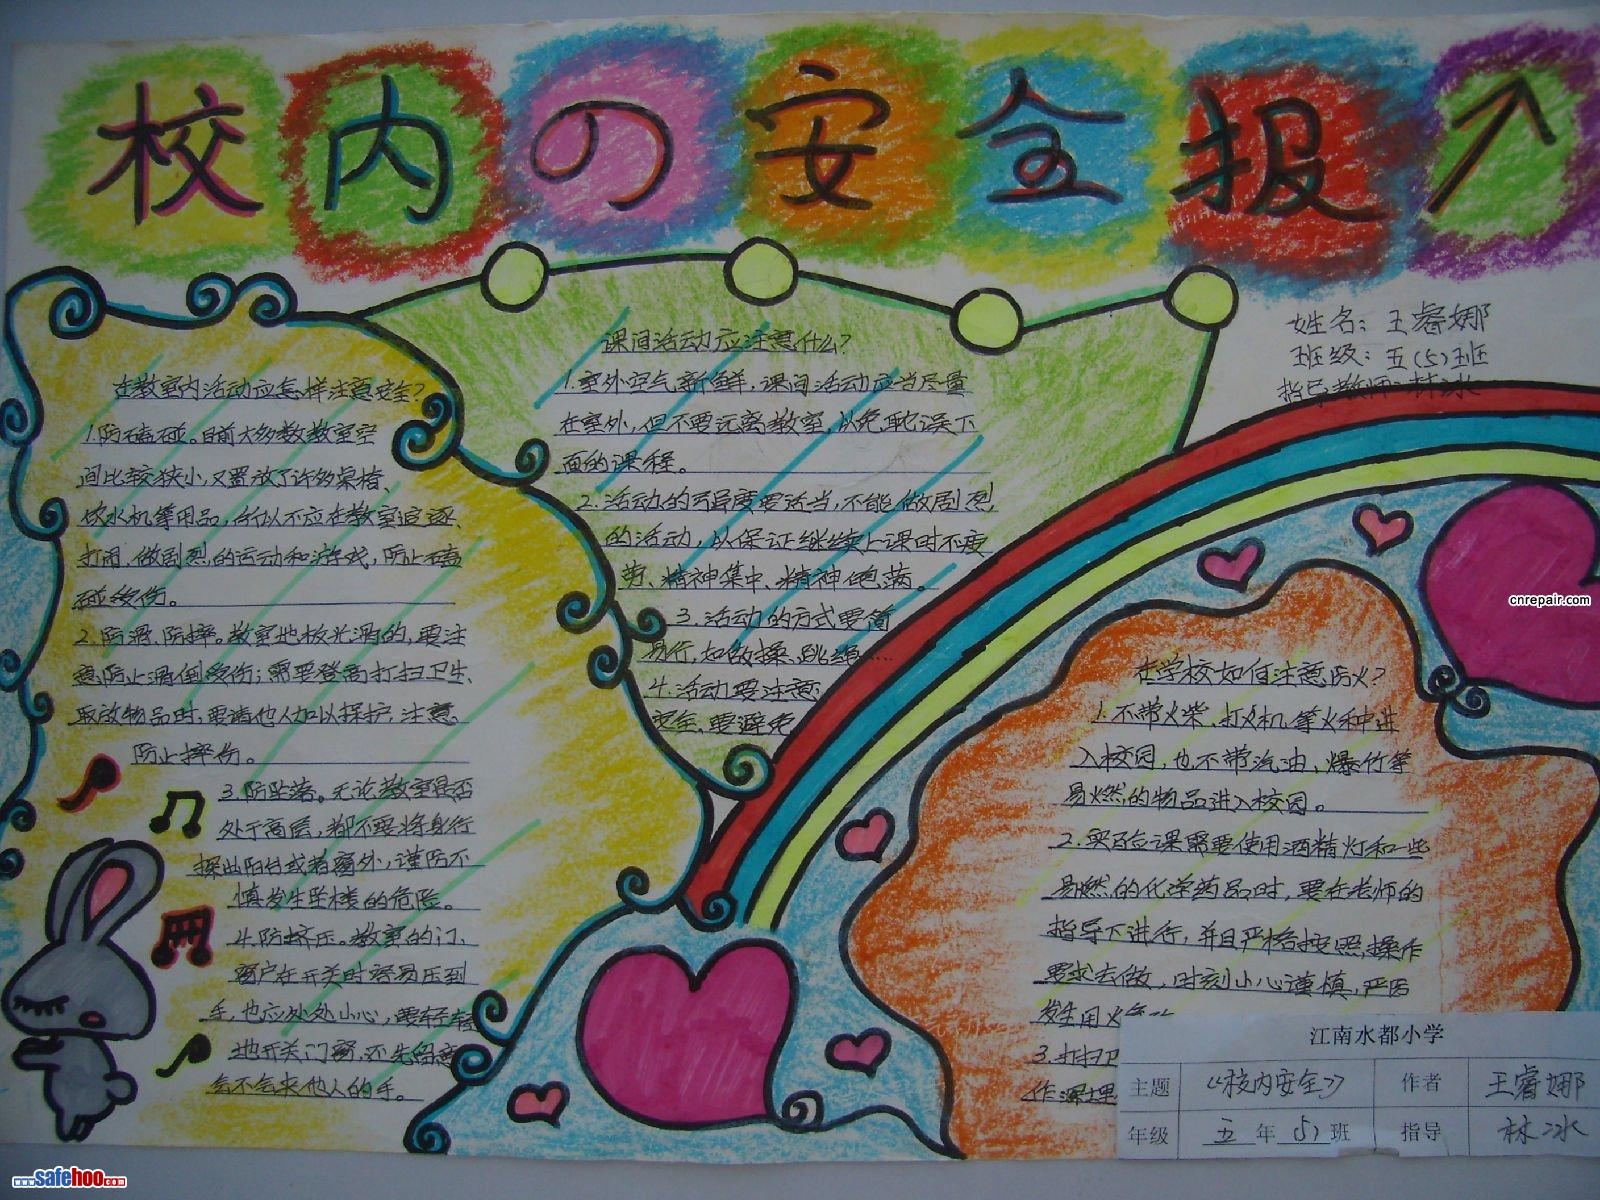 校内の安全报
姓名：王睿娜
班级：五(5)班
指导教师：林冰
在教室内活动应怎样注意安全？
1.防磕碰。目前大多数教室空
间比较狭小，又置放了许多桌椅、
饮水机等用品，所以不应在教室追逐、
打闹，做剧烈的运动和游戏，防止磕
碰受伤。
2.防滑、防摔。教室地板光滑的，要注
意防止滑倒受伤；需要登高打扫卫生、
取放物品时，要请他人加以保护，注意
防止摔伤。
3.防坠落。无论教室是否
处于高层，都不要将身行
探出阳台或者窗外，谨防不
慎发生坠楼的危险。
4.防挤压。教室的门、
窗户在开关时容易压到
手，也应处处小心，要轻轻
地开关门窗，还先留意
会不会夹他人的手。
课间活动应注意什么？
1.室外空气新鲜，课间活动应当尽量
在室外，但不要远离教室，以免耽误下
面的课程。
2.活动的强度要适当，不能做剧烈
的活动，以保证继续上课时不疲
劳、精神集中、精神饱满。
3.活动的方式要简
易行，如做操、跳绳…
4.活动要注意
安全，要避免
在学校如何注意防火？
1.不带火柴、打火机等火种进
入校园，也不带汽油、爆竹等
易燃的物品进入校园。
2.实验课需要使用酒精灯和一些
易燃的化学药品时，要在老师的
指导下进行，并且严格按照操作
要求去做，时刻小心谨慎，严防
发生用火
3.打扫卫
作深埋
江南水都小学
主题 《校内安全》 作者 王睿娜
年级 五年(5)班 指导 林冰
cnrepair.com
www.safehoo.com